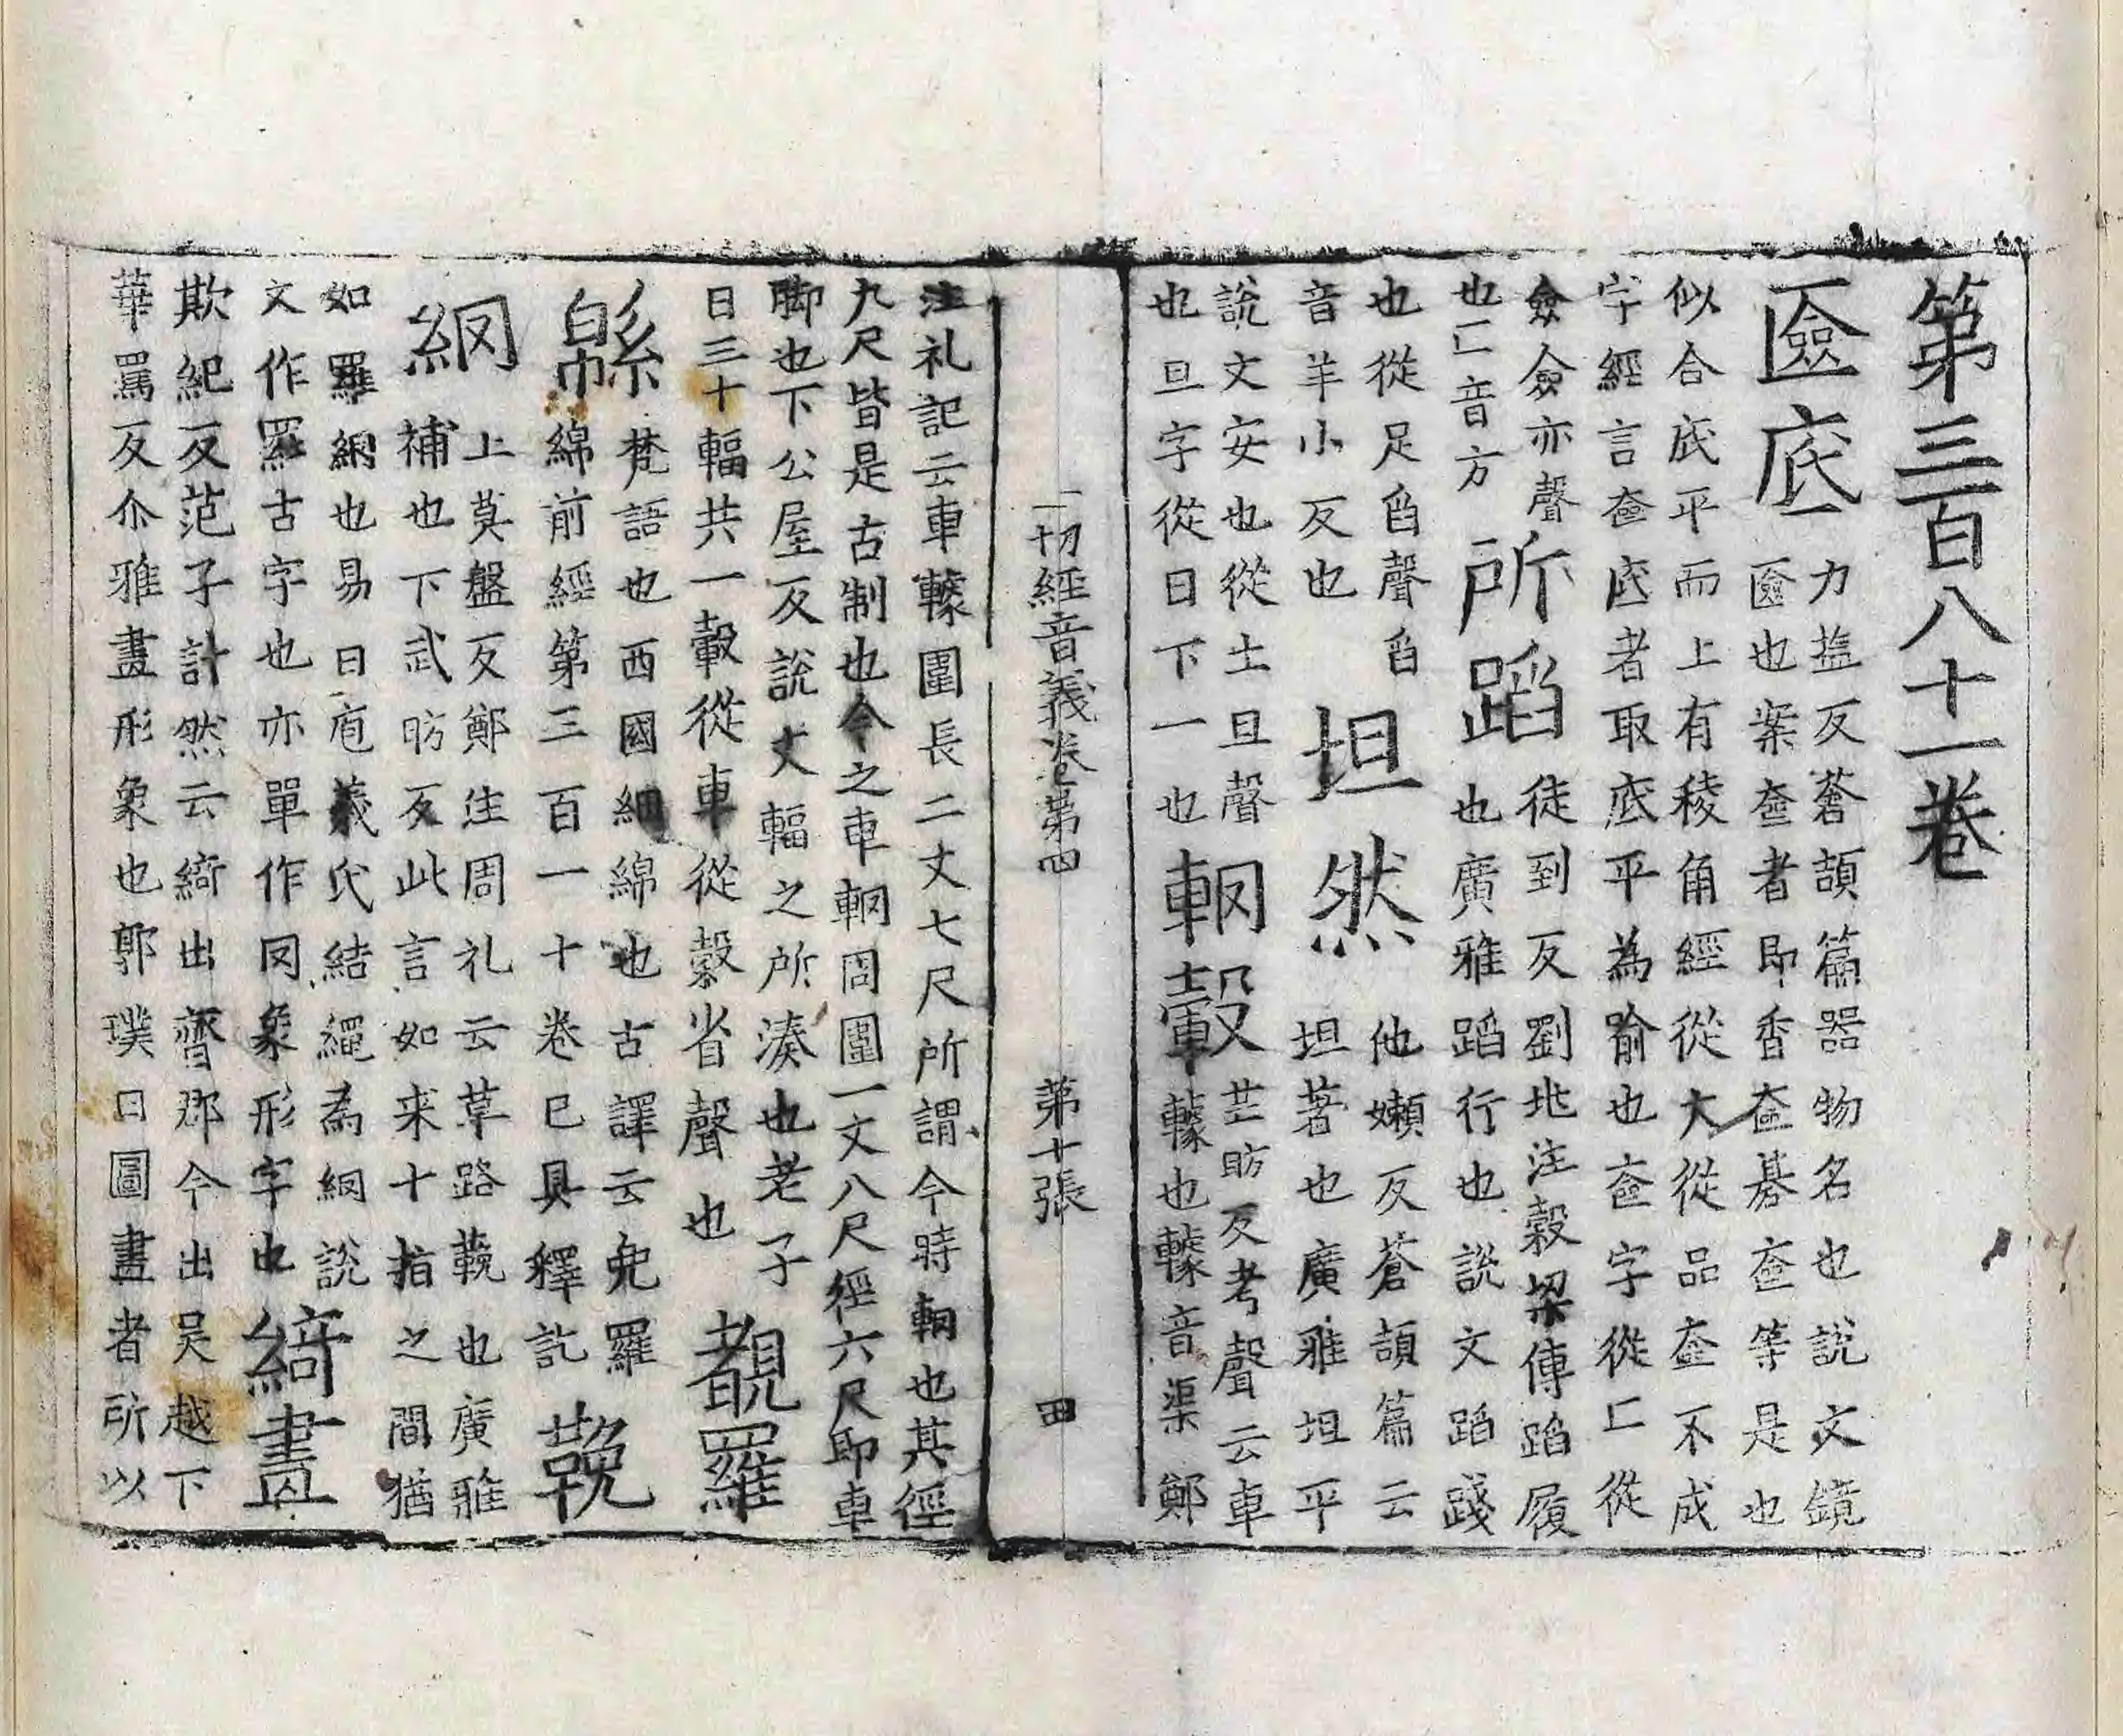 第三百八十一卷
匳底
力塩反蒼頡篇器物名也說文鏡
匳也案奩者即香奩碁奩等是也
似合底平而上有稜角經從大從品奩不成
字經言奩底者取底平為喻也奩字從匸從
僉僉亦聲
也匸音方
所蹈
徒到反劉兆注穀梁傳蹈履
也廣雅蹈行也說文蹈踐
也從足舀聲舀
音羊小反也
坦然
他嬾反蒼頡篇云
坦著也廣雅坦平
說文安也從土旦聲
也旦字從日下一也
輞轂
芒昉反考聲云車
轅也轅音渠鄭
一切經音義卷第四 第十張 田
注礼記云車轅圍長二丈七尺所謂今時輞也其徑
九尺皆是古制也今之車輞周圍一丈八尺徑六尺即車
脚也下公屋反說文輻之所湊也老子
曰三十輻共一轂從車從省聲也
覩羅
緜
梵語也西國細綿也古譯云兜羅
綿前經第三百一十卷已具釋訖
鞔
網
上莫盤反鄭注周礼云革路鞔也廣雅
補也下武昉反此言如来十指之間猶
如羅網也易曰庖羲氏結繩為網說
文作羅古字也亦單作罔象形字也
綺畫
欺紀反范子計然云綺出齊郡今出吴越下
華罵反尒雅畫形象也郭璞曰圖畫者所以